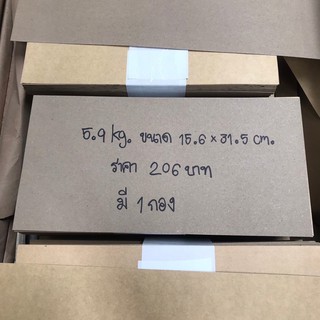 5.9 kg. ขนาด 15.6 x 31.5 cm.
ราคา 206 บาท
มี 1 กอง